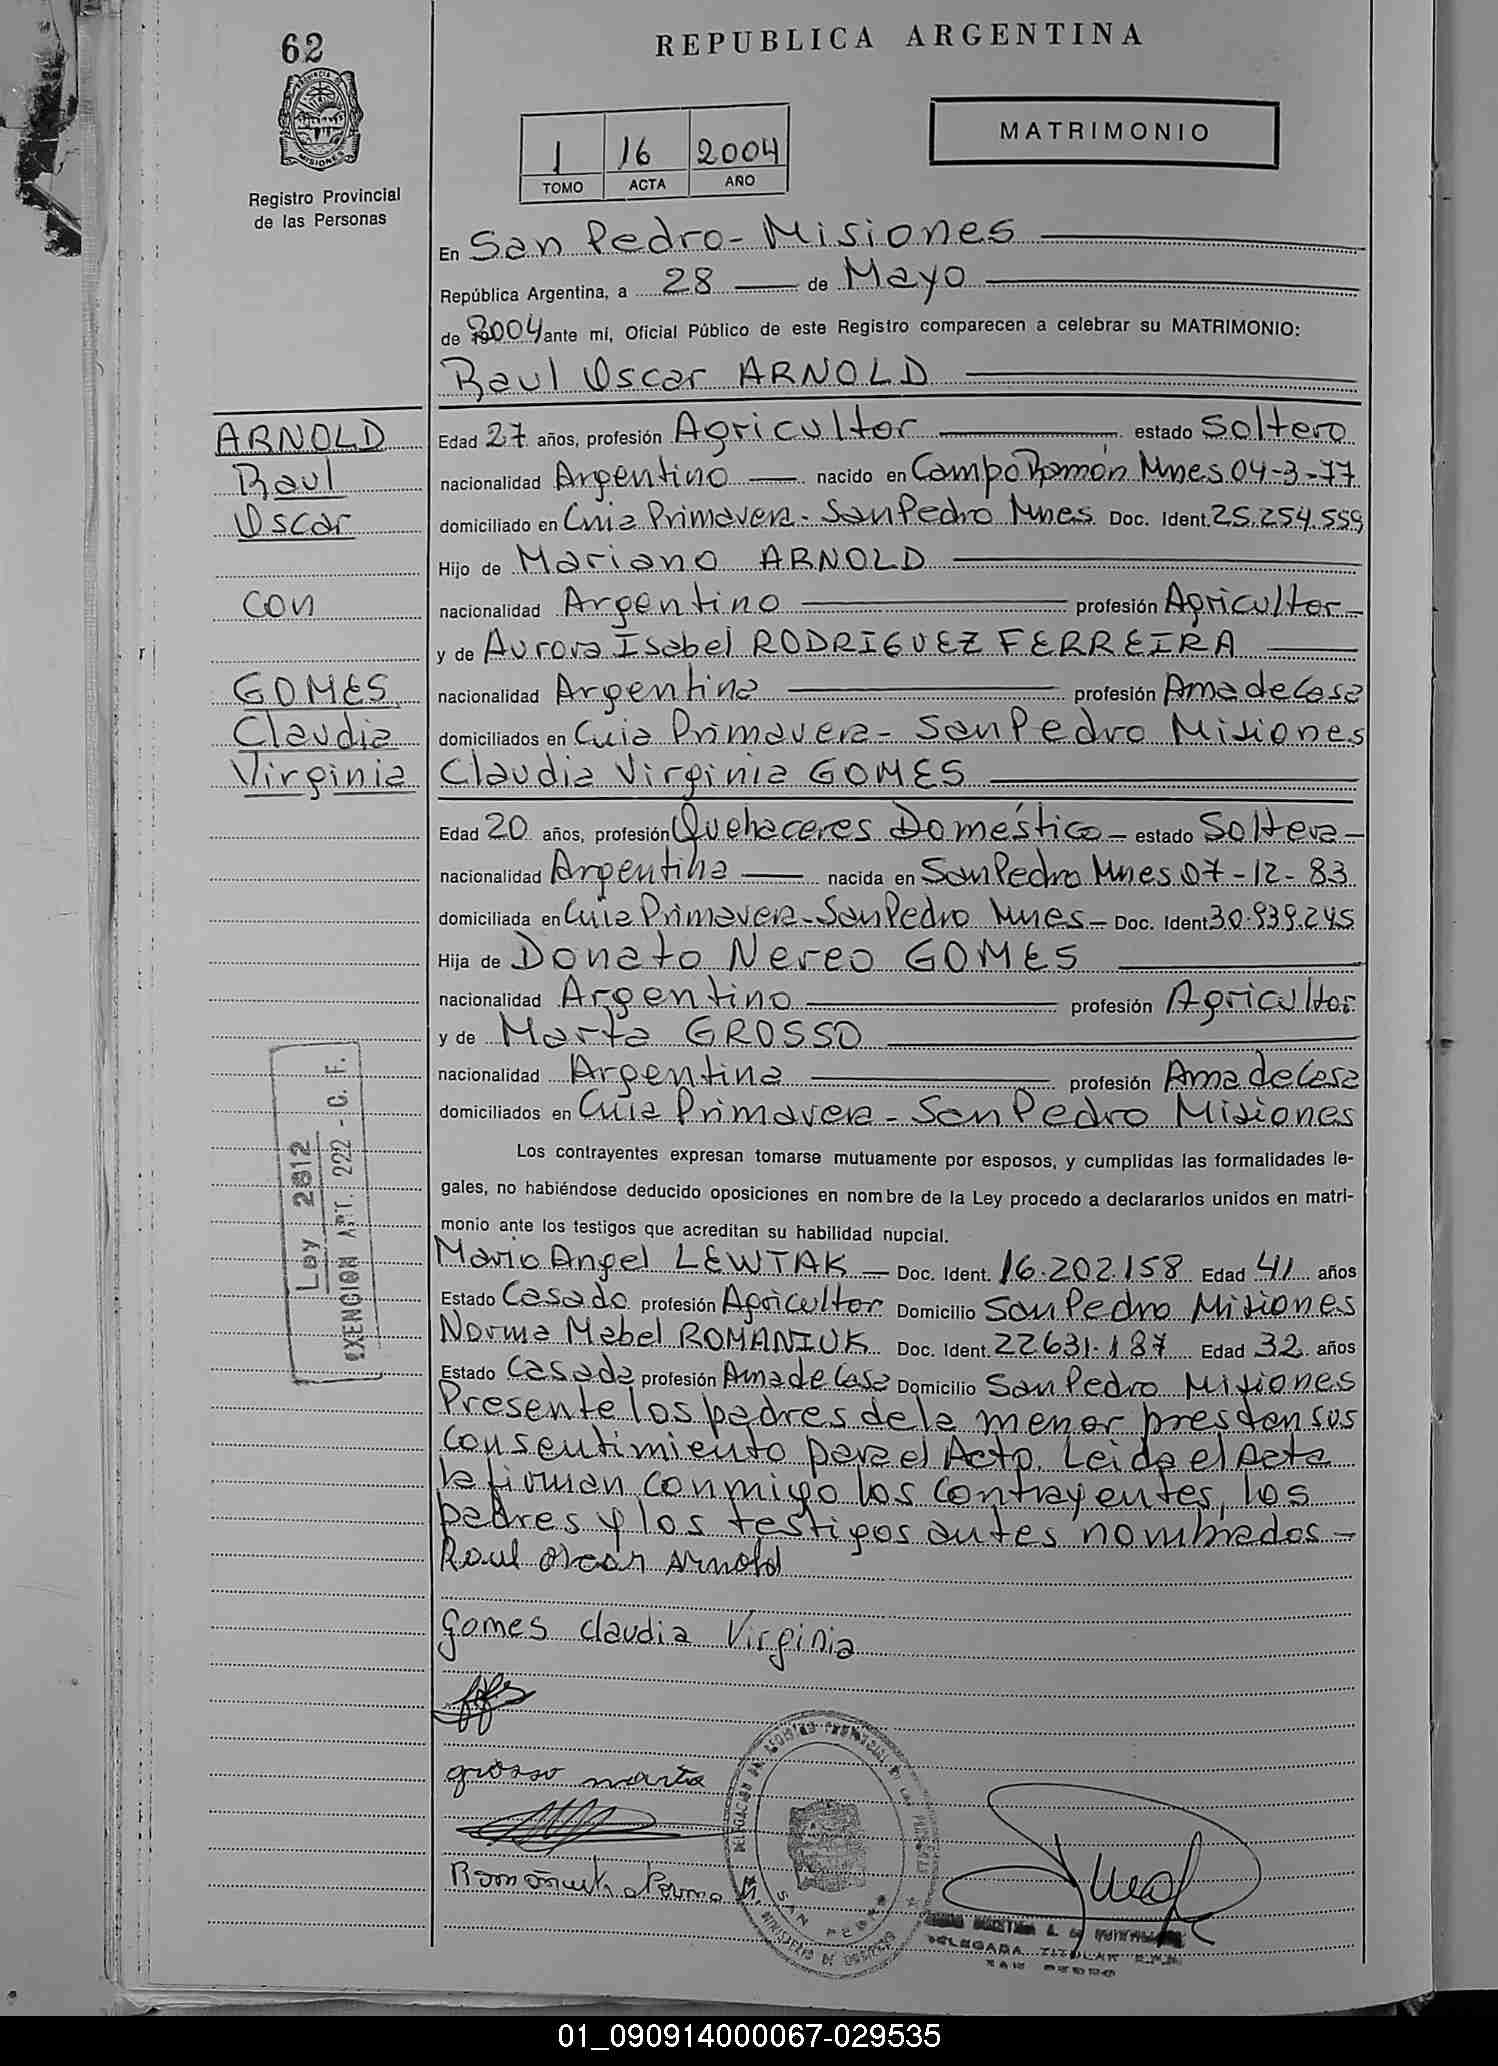 62
REPUBLICA ARGENTINA
PROVINCIA DE
MISIONES
Registro Provincial
de las Personas
1 16 2004
TOMO ACTA AÑO
MATRIMONIO
En San Pedro - Misiones
República Argentina, a 28 de Mayo
de 2004 ante mí, Oficial Público de este Registro comparecen a celebrar su MATRIMONIO:
Raul Oscar ARNOLD
ARNOLD
Raul
Oscar
con
GOMES
Claudia
Virginia
Edad 27 años, profesión Agricultor estado Soltero
nacionalidad Argentino nacido en Campo Ramón Mnes 04-3-77
domiciliado en Cnia Primavera - San Pedro Mnes Doc. Ident. 25.254.559
Hijo de Mariano ARNOLD
nacionalidad Argentino profesión Agricultor
y de Aurora Isabel RODRIGUEZ FERREIRA
nacionalidad Argentina profesión Ama de Casa
domiciliados en Cnia Primavera - San Pedro Misiones
Claudia Virginia GOMES
Edad 20 años, profesión Quehaceres Doméstico estado Soltera
nacionalidad Argentina nacida en San Pedro Mnes 07-12-83
domiciliada en Cnia Primavera - San Pedro Mnes - Doc. Ident 30.939.245
Hija de Donato Nereo GOMES
nacionalidad Argentino profesión Agricultor
y de Marta GROSSO
nacionalidad Argentina profesión Ama de Casa
domiciliados en Cnia Primavera - San Pedro Misiones
Los contrayentes expresan tomarse mutuamente por esposos, y cumplidas las formalidades le-
gales, no habiéndose deducido oposiciones en nombre de la Ley procedo a declararlos unidos en matri-
monio ante los testigos que acreditan su habilidad nupcial.
Ley 2812
EXENCION ART. 222 - C. F.
Mario Angel LEWTAK Doc. Ident. 16.202.158 Edad 41 años
Estado Casado profesión Agricultor Domicilio San Pedro Misiones
Norma Mabel ROMANIUK Doc. Ident. 22631.187 Edad 32 años
Estado Casada profesión Ama de Casa Domicilio San Pedro Misiones
Presente los padres de la menor prestan sus
consentimiento para el Acto. Leida el Acta
la firman conmigo los contrayentes, los
padres y los testigos antes nombrados -
Raul Oscar Arnold
Gomes Claudia Virginia
grosso marta
Romañiuk Norma M
SAN PEDRO
DELEGADA TITULAR
SAN PEDRO
01_090914000067-029535